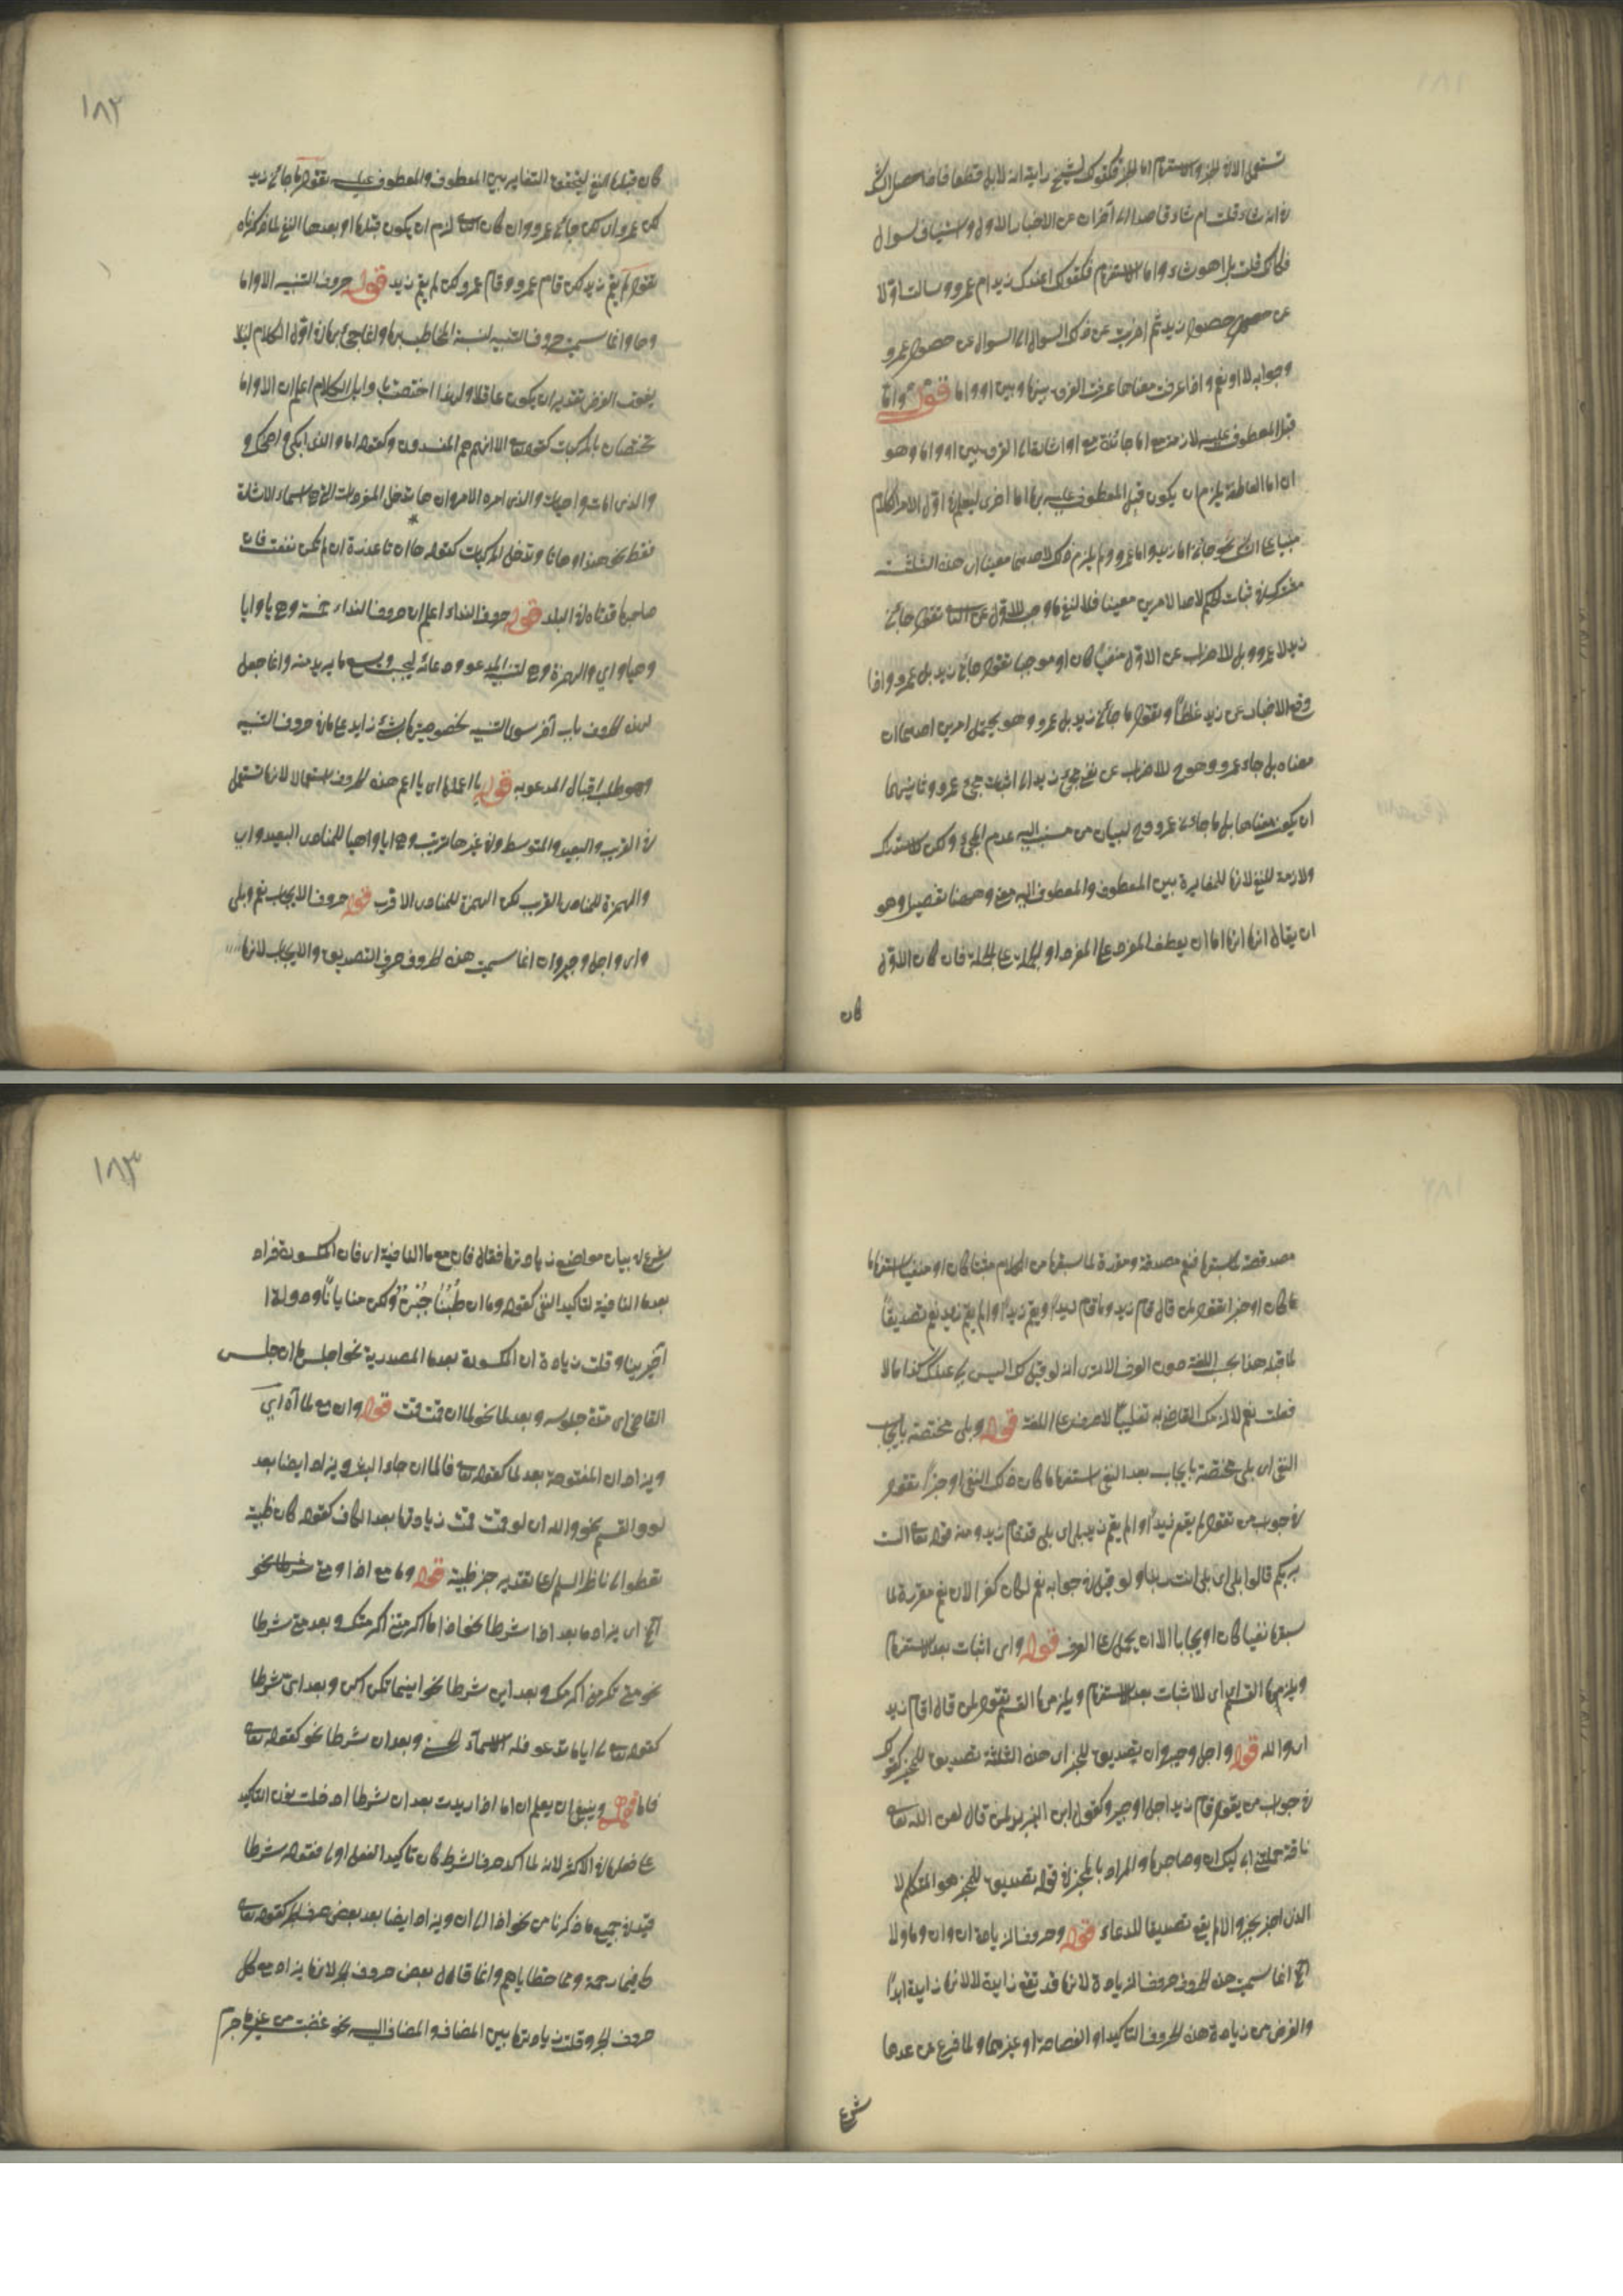 تستعمل الا في الخبر والاستفهام اما الخبر فكقولك لشبح رايته انه لابل قطعا فاذا حصل الشك
في انه شاء قلت ام شاء قاصدا الى اضراب عن الاخبار الاول واستيناف سوال
فكانك قلت بل اهو شاء واما الاستفهام فكقولك اعندك زيد ام عمرو وسالت اولا
عن حصول زيد ثم اضربت عن ذلك السوال الى السوال عن حصول عمرو
وجوابه لا او نعم واذا عرفت معناها عرفت الفرق بينها وبين او واما قوله واما
قبل المعطوف عليه لازمة مع اما جائزة مع او اشارة الى الفرق بين او واما وهو
ان اما العاطفة يلزم ان يكون قبل المعطوف عليه بها اما اخرى ليعلم في اول الامر ان الكلام
مبنيا على الشك نحو جاءني اما زيد واما عمرو ولم يلزم ذلك لاحدهما معينا ان هذه الثلثة
مشتركة في ثبات الحكم لاحد الامرين معينا فلا لنفي ما وجب للاول عن الثاني تقول جاءني
زيد لا عمرو وبل للاضراب عن الاول منفيا كان او موجبا تقول جاءني زيد بل عمرو واذا
وقع الاخبار عن زيد غلطا وتقول ما جاءني زيد بل عمرو وهو يحتمل امرين احدهما ان
معناه بل جاء عمرو وهو ح للاضراب عن نفي مجئ زيد الى اثبات مجئ عمرو وثانيهما
ان يكون معناها بل ما جاءني عمرو وح لبيان من نسب اليه عدم المجئ ولكن للاستدراك
ولازمة للنفي لانها للمغايرة بين المعطوف والمعطوف اليه معنى وههنا تفصيل وهو
ان يقال انها اما ان يعطف المفرد على المفرد او الجملة على الجملة فان كان الاول
كان
١٨٢
كان قبلها النفي ليتحقق التغاير بين المعطوف والمعطوف عليه تقول ما جاءني زيد
لكن عمرو اى لكن جاءني عمرو وان كان الثاني لزم ان يكون قبلها او بعدها النفي لما ذكرناه
تقول لم يقم زيد لكن قام عمرو وقام عمرو لكن لم يقم زيد قوله حروف التنبيه الا واما
وها وانما سميت حروف التنبيه لتنبيه المخاطب بها وانما يجئ بها في اول الكلام لئلا
يفوت الغرض بتقدير ان يكون غافلا ولهذا اختصت باوايل الكلام اعلم ان الا واما
تختصان بالمركبات كقوله تعالى الا انهم هم المفسدون وكقوله اما والذى ابكى واضحك و
والذى امات واحيا والذى امره الامر وان ها تدخل المفردات التي هي اسماء الاشارة
فقط نحو هذا وهاتا وتدخل المركبات كقوله ها ان تا عذرة ان لم تكن نفعت فان
صاحبها قد تاه في البلد قوله حروف النداء اعلم ان حروف النداء خمسة وهي يا وايا
وهيا واي والهمزة وهي لتنبيه المدعو ودعائه ليجيب ويسمع ما يريد منه وانما جعل
لهذه الحروف باب آخر سوى التنبيه لخصوصيتها بشئ زايد على ما في حروف التنبيه
وهو طلب اقبال المدعو به قوله يا اعمها اى يا اعم هذه الحروف استعمالا لانها تستعمل
في القريب والبعيد والمتوسط وفي غيرها ترتيب وهي ايا وهيا للمنادى البعيد واي
والهمزة للمنادى القريب لكن الهمزة للمنادى الاقرب قوله حروف الايجاب نعم وبلى
واى واجل وجير وان انما سميت هذه الحروف حرف التصديق والايجاب لانها
مصدقة لما سبقها فنعم مصدقة ومقررة لما سبقها من الكلام مثبتا كان او منفيا استفهاما
ما كان او خبرا تقول لمن قال قام زيد وما قام زيد او يقم زيد او الم يقم زيد نعم تصديقا
لما قبله هذا بحسب اللغة دون العرف الا ترى انه لو قيل لك اليس لي عندك كذا مالا
فقلت نعم لالزمك القاضى به تغليبا للعرف على اللغة قوله وبلى مختصة بايجاب
النفى اى بلى مختصة بايجاب بعد النفى استفهاما كان ذلك النفى او خبرا تقول
في جواب من تقول لم يقم زيد او الم يقم زيد بلى اى بلى قد قام زيد ومنه قوله تعالى الست
بربكم قالوا بلى اى بلى انت ربنا ولو قيل في جوابه نعم لكان كفرا لان نعم مقررة لما
سبقها نفيا كان او ايجابا الا ان يحمل على العرف قوله واى اثبات بعد الاستفهام
ويلزمها القسم اى للاثبات بعد الاستفهام ويلزمها القسم تقول لمن قال اقام زيد
اى والله قوله واجل وجير وان تصديق للخبر اى هذه الثلثة تصديق للمخبر كقولك
في جواب من يقول قام زيد اجل او جير وكقول ابن الزبير لمن قال لعن الله تعالى
ناقة حملتني اليك ان وصاحبها والمراد بالمخبر في قوله تصديق للمخبر هو المتكلم لا
الذى اخبر بخبر والا لم يقع تصديقا للدعاء قوله وحروف الزيادة ان وان وما ولا
اه انما سميت هذه الحروف حروف الزيادة لانها قد تقع زايدة لا لانها زايدة ابدا
والغرض من زيادة هذه الحروف التاكيد او الفصاحة او غيرهما ولما فرغ عن عدها
شرع
١٨٣
شرع في بيان مواضع زيادتها فقال فان مع ما النافية اى فان المكسورة تزاد
بعد ما النافية لتاكيد النفى كقوله وما ان طبنا جبن ولكن منايانا ودولة
آخرينا وقلت زيادة ان المكسورة بعد ما المصدرية نحو اجلس ما ان جلس
القاضى اى مدة جلوسه وبعد لما نحو لما ان قمت قمت قوله وان مع لما اه اي
ويزاد ان المفتوحة بعد لما كقوله تعالى فلما ان جاء البشير ويزاد ايضا بعد
لو والقسم نحو والله ان لو قمت قمت زيادتها بعد الكاف كقوله كان ظبية
تعطو الى ناظر السلم على تقدير جر ظبية قوله وما مع اذا ومتى شرطا نحو
اه اى يزاد ما بعد اذا شرطا نحو اذا ما اكرمتني اكرمتك وبعد متى شرطا
نحو متى تكرمني اكرمك وبعد اين شرطا نحو اينما تكن اكن وبعد اى شرطا
كقوله تعالى ايا ما تدعو فله الاسماء الحسنى وبعد ان شرطا نحو كقوله تعالى
فاما قوله وينبغي ان يعلم ان اما اذا زيدت بعد ان شرطا ادخلت نون التاكيد
على فعلها في الاكثر لانه لما اكد حرف الشرط كان تاكيد الفعل اولى فقوله شرطا
قيد في جميع ما ذكرنا من نحو اذا الى ان ويزاد ايضا بعد بعض حرف الجر كقوله تعالى
فبما رحمة ومما خطاياهم وانما قال بعض حروف الجر لانها يزاد مع كل
حروف الجر وقلت زيادتها بين المضاف والمضاف اليه نحو غضبت من غير ما جرم